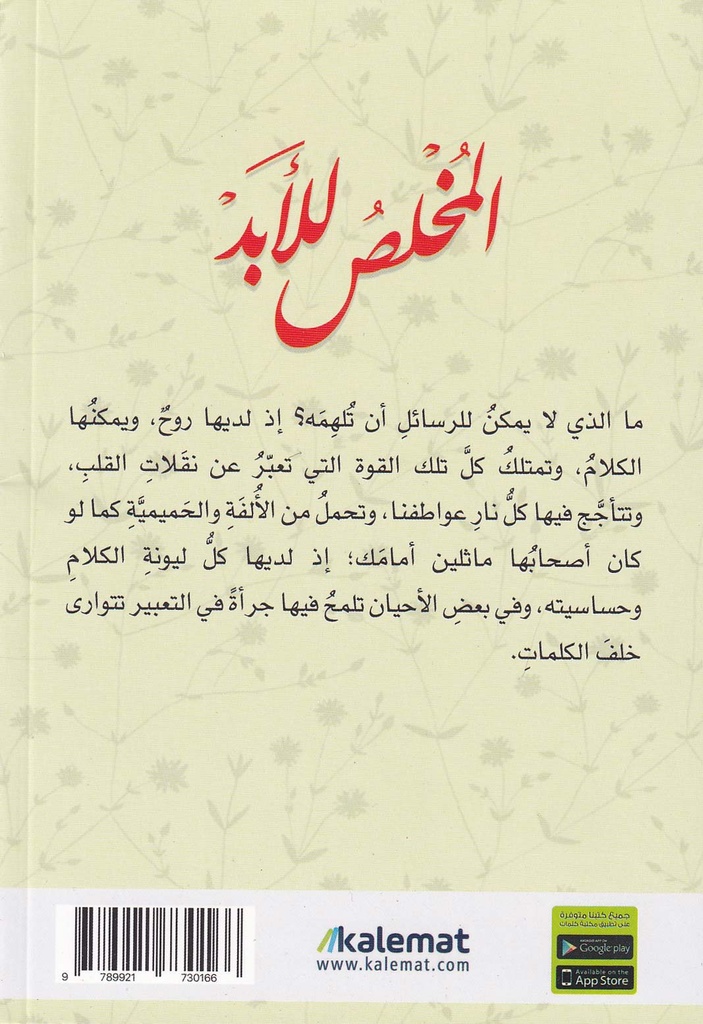 المُخْلصُ للأَبَدْ
ما الذي لا يمكنُ للرسائلِ أن تُلهِمَه؟ إذ لديها روحٌ، ويمكنُها
الكلامُ، وتمتلكُ كلَّ تلك القوة التي تعبّرُ عن نقَلاتِ القلبِ،
وتتأجَّج فيها كلُّ نارِ عواطفنا، وتحملُ من الأُلفَةِ والحَميميَّةِ كما لو
كان أصحابُها ماثلين أمامَك؛ إذ لديها كلُّ ليونةِ الكلامِ
وحساسيته، وفي بعضِ الأحيان تلمحُ فيها جرأةً في التعبير تتوارى
خلفَ الكلماتِ.
9 789921 730166
kalemat
www.kalemat.com
جميع كتبنا متوفرة
على تطبيق مكتبة كلمات
ANDROID APP ON
Google play
Available on the
App Store